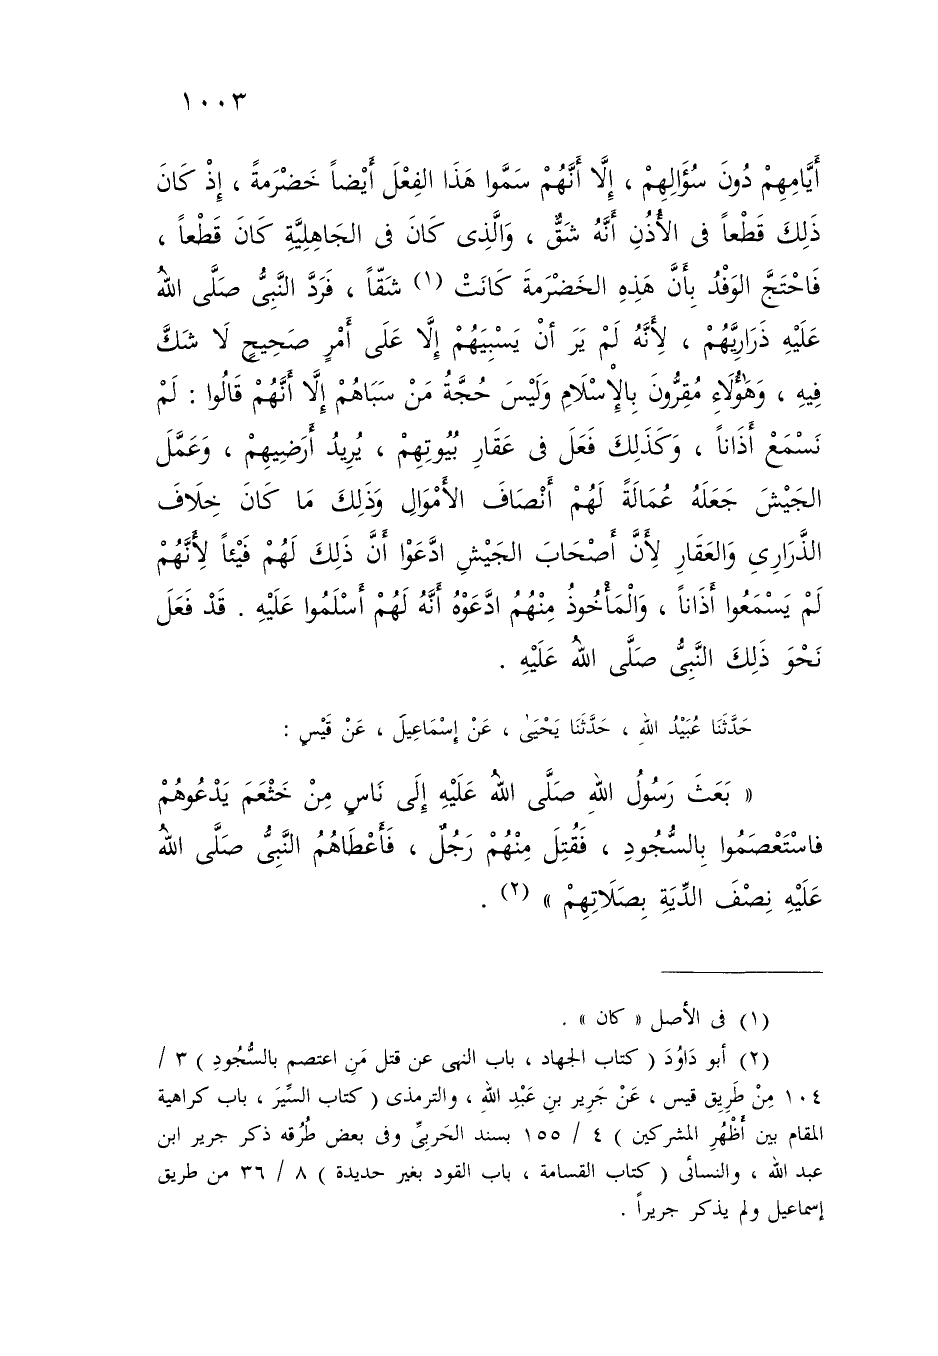 ١٠٠٣
أَيَّامِهِمْ دُونَ سُؤَالِهِمْ ، إِلَّا أَنَّهُمْ سَمَّوا هَذَا الفِعْلَ أَيْضاً خَضْرَمةً ، إِذْ كَانَ
ذَلِكَ قَطْعاً فى الأُذُنِ أَنَّهُ شَقٌّ ، وَالَّذِى كَانَ فى الجَاهِلِيَّةِ كَانَ قَطْعاً ،
فَاحْتَجَّ الوَفْدُ بِأَنَّ هَذِهِ الخَضْرَمةَ كَانَتْ (١) شَقّاً ، فَرَدَّ النَّبِىُّ صَلَّى اللهُ
عَلَيْهِ ذَرَارِيَّهُمْ ، لِأَنَّهُ لَمْ يَرَ أنْ يَسْبِيَهُمْ إِلَّا عَلَى أَمْرٍ صَحِيحٍ لَا شَكَّ
فِيهِ ، وَهَؤُلَاءِ مُقِرُّونَ بِالْإِسْلَامِ وَلَيْسَ حُجَّةُ مَنْ سَبَاهُمْ إِلَّا أَنَّهُمْ قَالُوا : لَمْ
نَسْمَعْ أَذَاناً ، وَكَذَلِكَ فَعَلَ فى عَقَارِ بُيُوتِهِمْ ، يُرِيدُ أَرَضِيهِمْ ، وَعَمَّلَ
الجَيْشَ جَعَلَهُ عُمَالَةً لَهُمْ أَنْصَافَ الأَمْوَالِ وَذَلِكَ مَا كَانَ خِلَافَ
الذَّرَارِى وَالعَقَارِ لِأَنَّ أَصْحَابَ الجَيْشِ ادَّعَوْا أَنَّ ذَلِكَ لَهُمْ فَيْئاً لِأَنَّهُمْ
لَمْ يَسْمَعُوا أَذَاناً ، وَالْمَأْخُوذُ مِنْهُمُ ادَّعَوْهُ أَنَّهُ لَهُمْ أَسْلَمُوا عَلَيْهِ . قَدْ فَعَلَ
نَحْوَ ذَلِكَ النَّبِىُّ صَلَّى اللهُ عَلَيْهِ .
حَدَّثَنَا عُبَيْدُ اللهِ ، حَدَّثَنَا يَحْيَىٰ ، عَنْ إِسْمَاعِيلَ ، عَنْ قَيْسٍ :
« بَعَثَ رَسُولُ اللهِ صَلَّى اللهُ عَلَيْهِ إِلَى نَاسٍ مِنْ خَثْعَمَ يَدْعُوهُمْ
فاسْتَعْصَمُوا بِالسُّجُودِ ، فَقُتِلَ مِنْهُمْ رَجُلٌ ، فَأَعْطَاهُمُ النَّبِىُّ صَلَّى اللهُ
عَلَيْهِ نِصْفَ الدِّيَةِ بِصَلَاتِهِمْ » (٢) .
(١) فى الأصل « كان » .
(٢) أبو دَاوُدَ ( كتاب الجهاد ، باب النهى عن قتل مَنِ اعتصم بالسُّجُودِ ) ٣ /
١٠٤ مِنْ طَرِيق قيس ، عَنْ جَرِير بنِ عَبْدِ اللهِ ، والترمذى ( كتاب السِّيَرَ ، باب كراهية
المقام بين أَظْهُرِ المشركين ) ٤ / ١٥٥ بسند الحَربِىِّ وفى بعض طُرُقه ذكر جرير ابن
عبد الله ، والنسائى ( كتاب القسامة ، باب القود بغير حديدة ) ٨ / ٣٦ من طريق
إسماعيل ولم يذكر جريراً .